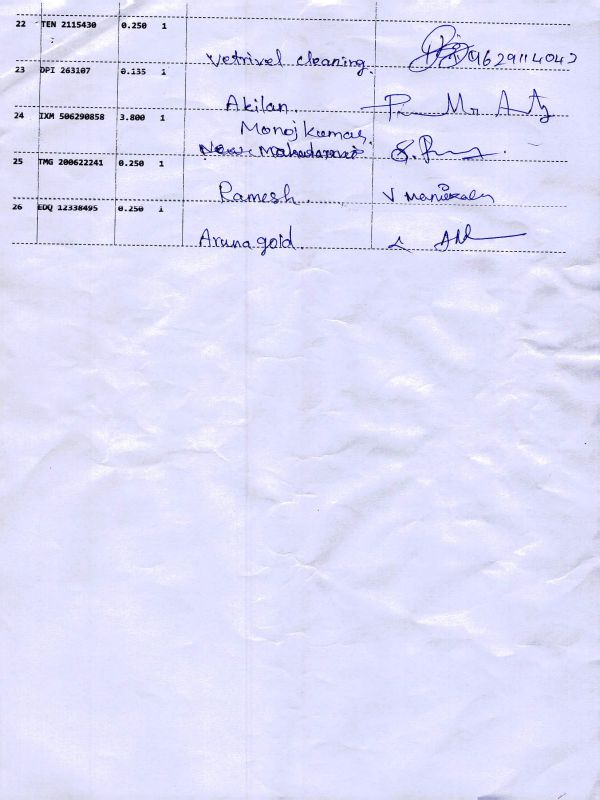 22 TEN 2115430 0.250 1
Vetrivel cleaning. 9629114042
23 DPI 263107 0.135 1
Akilan.
24 IXM 506290858 3.800 1
Manoj kumar.
New
25 TMG 200622241 0.250 1
Ramesh.
26 EDQ 12338495 0.250 1
Aruna gold